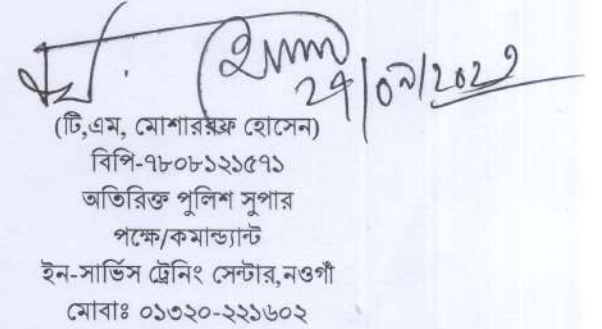 (টি,এম, মোশাররফ হোসেন)
বিপি-৭৮০৮১২১৫৭১
অতিরিক্ত পুলিশ সুপার
পক্ষে/কমান্ড্যান্ট
ইন-সার্ভিস ট্রেনিং সেন্টার,নওগাঁ
মোবাঃ ০১৩২০-২২১৬০২